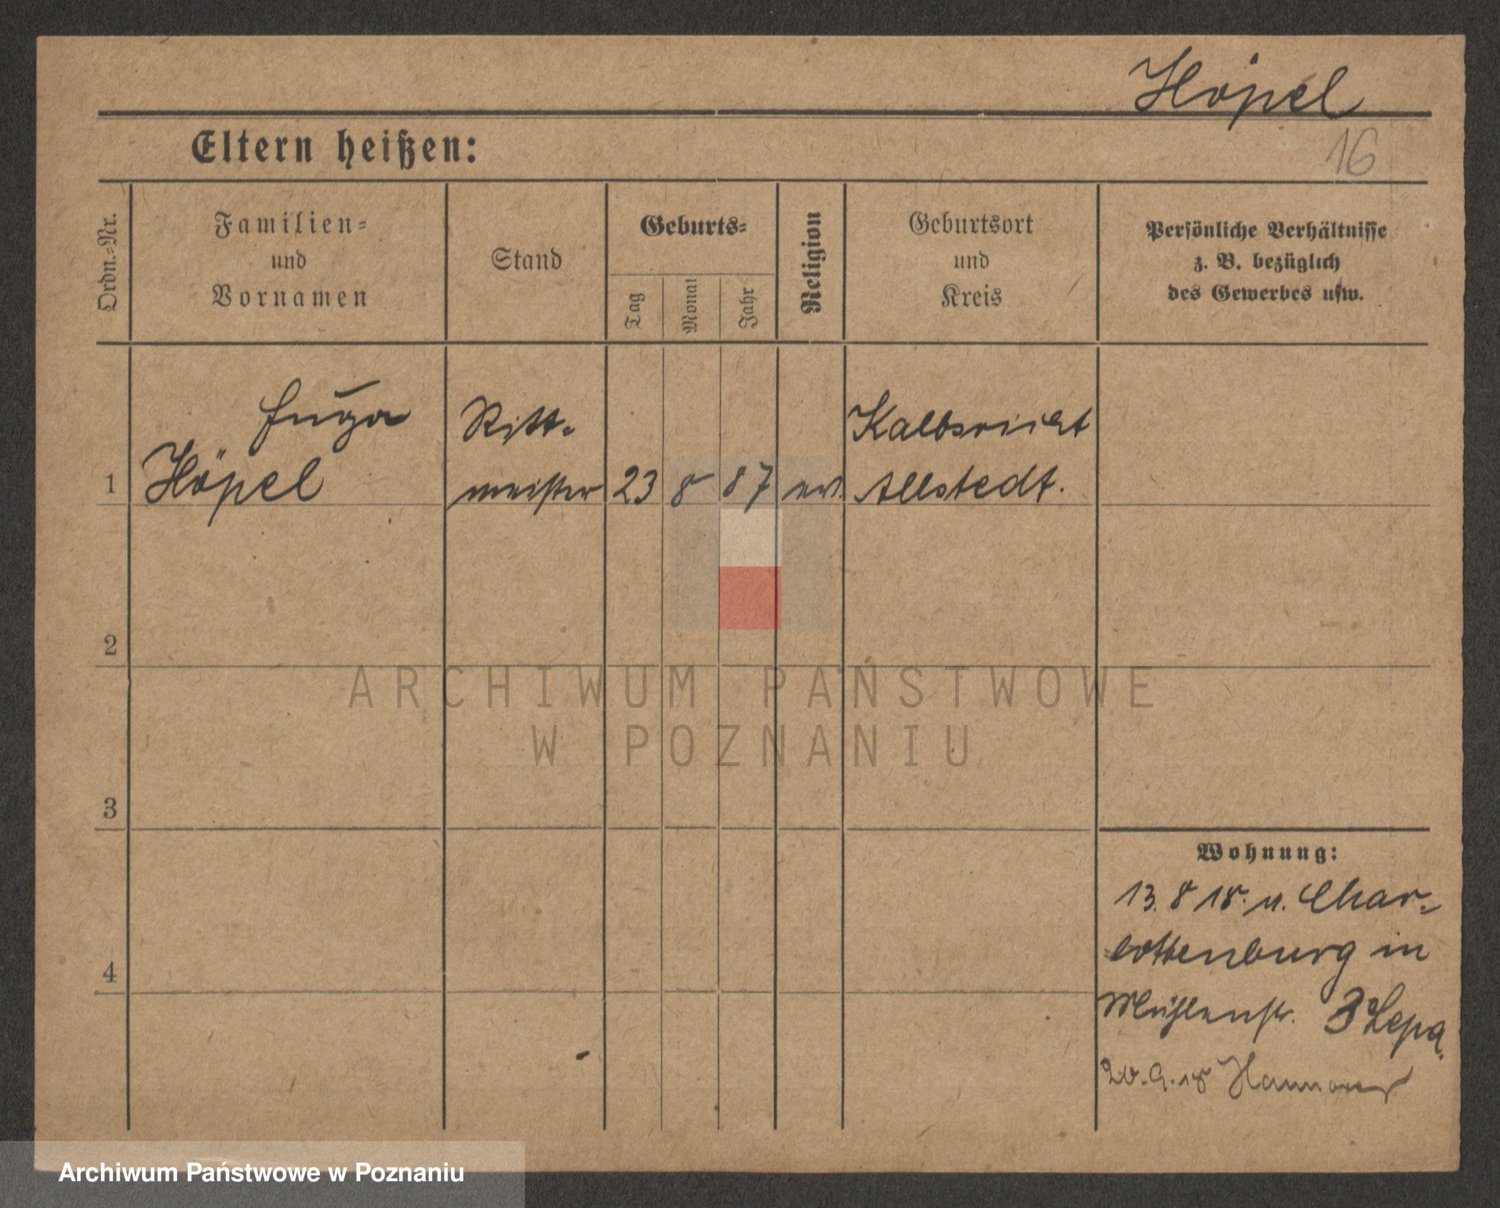 Höpel
16
Eltern heißen:
Ordn.-Nr.
Familien-
und
Vornamen
Stand
Geburts-
Tag
Monat
Jahr
Religion
Geburtsort
und
Kreis
Persönliche Verhältnisse
z. B. bezüglich
des Gewerbes usw.
Hugo
Höpel
Ritt-
meister
1
23
8
87
ev.
Kalbsrieth
Allstedt.
2
ARCHIWUM PAŃSTWOWE
W POZNANIU
3
Wohnung:
13. 8 18. v. Char-
lottenburg in
Mühlenstr. 3
4
20. 9. 18 Hannover
Archiwum Państwowe w Poznaniu